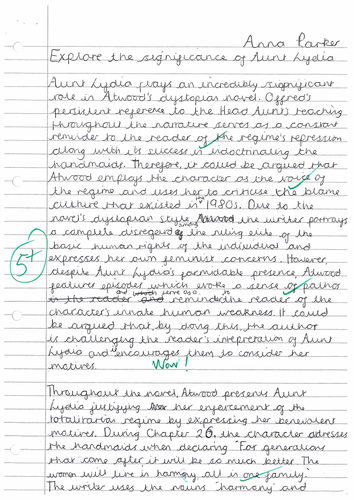 Anna Parker
Explore the significance of Aunt Lydia
Aunt Lydia plays an incredibly significant
role in Atwood's dystopian novel. Offred's
persistent reference to the Head Aunt's teaching
throughout the narrative serves as a constant
reminder to the reader of the regime's repression
along with its success in indoctrinating the
handmaids. Therefore, it could be argued that
Atwood employs the character as the voice of
the regime and uses her to criticise the blame
culture that existed in the 1980s. Due to the
novel's dystopian style, the writer portrays
a complete disregard by the ruling elite of the
basic human rights of the individual and
expresses her own feminist concerns. However,
5+
despite Aunt Lydia's formidable presence, Atwood
features episodes which evoke a sense of pathos
and serve as a
in the reader and reminds the reader of the
character's innate human weakness. It could
be argued that, by doing this, the author
is challenging the reader's intepretation of Aunt
Lydia and encourages them to consider her
motives.
Wow!
Throughout the novel, Atwood presents Aunt
Lydia justifying her enforcement of the
totalitarian regime by expressing her benevolent
motives. During Chapter 26, the character addresses
the handmaids when declaring "For generations
that come after, it will be so much better. The
women will live in harmony, all in one family."
The writer uses the nouns "harmony" and